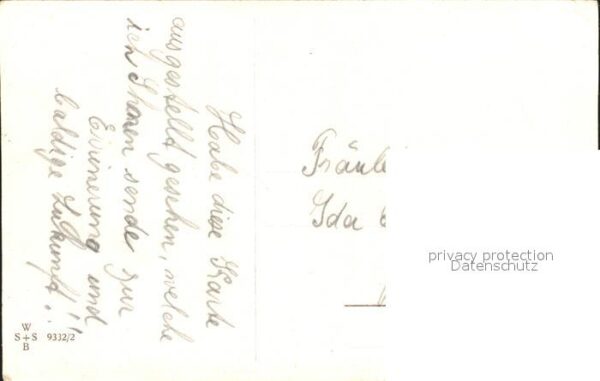 Habe diese Karte
ausgestellt gesehen, welche
ich Ihnen sende zur
Erinnerung und
baldige Zukunft!!
Fräule
Ida
privacy protection
Datenschutz
W
S+S
B
9332/2